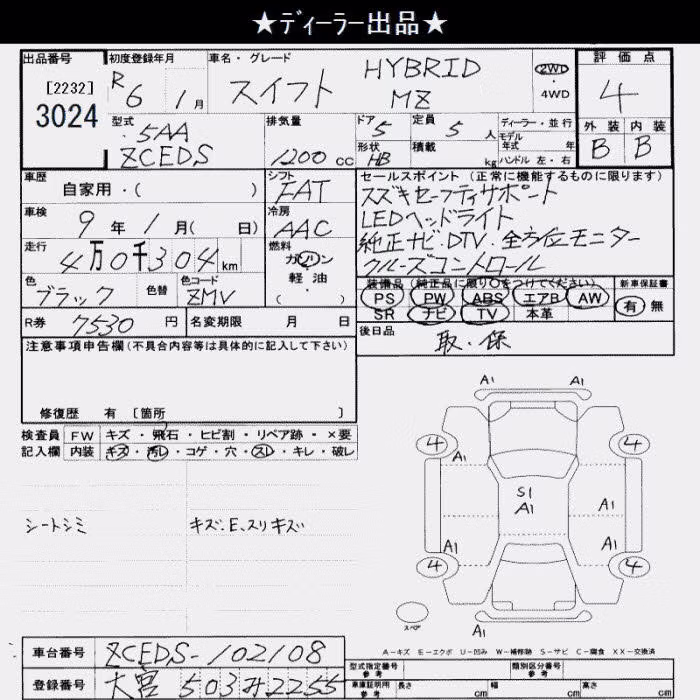 ★ディーラー出品★
出品番号
[2232]
3024
初度登録年月
R6 1月
車名・グレード
スイフト HYBRID MZ
2WD
・4WD
評価点
4
外装 内装
B B
型式
5AA
ZCEDS
排気量
1200 cc
ドア 5
定員 5 人
形状 HB
積載 kg
ディーラー・並行
モデル年式 年
ハンドル 左・右
車歴
自家用・( )
シフト
FAT
車検
9年 1月( 日)
冷房
AAC
走行
4万0千304km
燃料
ガソリン
・
軽油
( )
色
ブラック
色替
色コード
ZMV
R券 7530 円
名変期限 月 日
セールスポイント(正常に機能するものに限ります)
スズキセーフティサポート
LEDヘッドライト
純正ナビ・DTV・全方位モニター
クルーズコントロール
装備品(純正品に限り〇をつけてください)
PS PW ABS エアB AW
SR ナビ TV 本革
新車保証書
有 無
後日品
取・保
注意事項申告欄(不具合内容等は具体的に記入して下さい)
修復歴 有 [箇所 ]
検査員 FW キズ・飛石・ヒビ割・リペア跡・×要
記入欄 内装 キズ・汚レ・コゲ・穴・スレ・キレ・破レ
シートシミ
キズ、E、スリキズ
A1 A1
4 4
A1
S1
A1
A1
A1 A1
4 4
スペア
A1
A-キズ E-エクボ U-凹み W-補修跡 S-サビ C-腐食 XX-交換済
車台番号 ZCEDS-102108
登録番号 大宮 503み2255
型式指定番号
参考
類別区分番号
参考
車庫証明用
参考
長さ cm
幅 cm
高さ cm